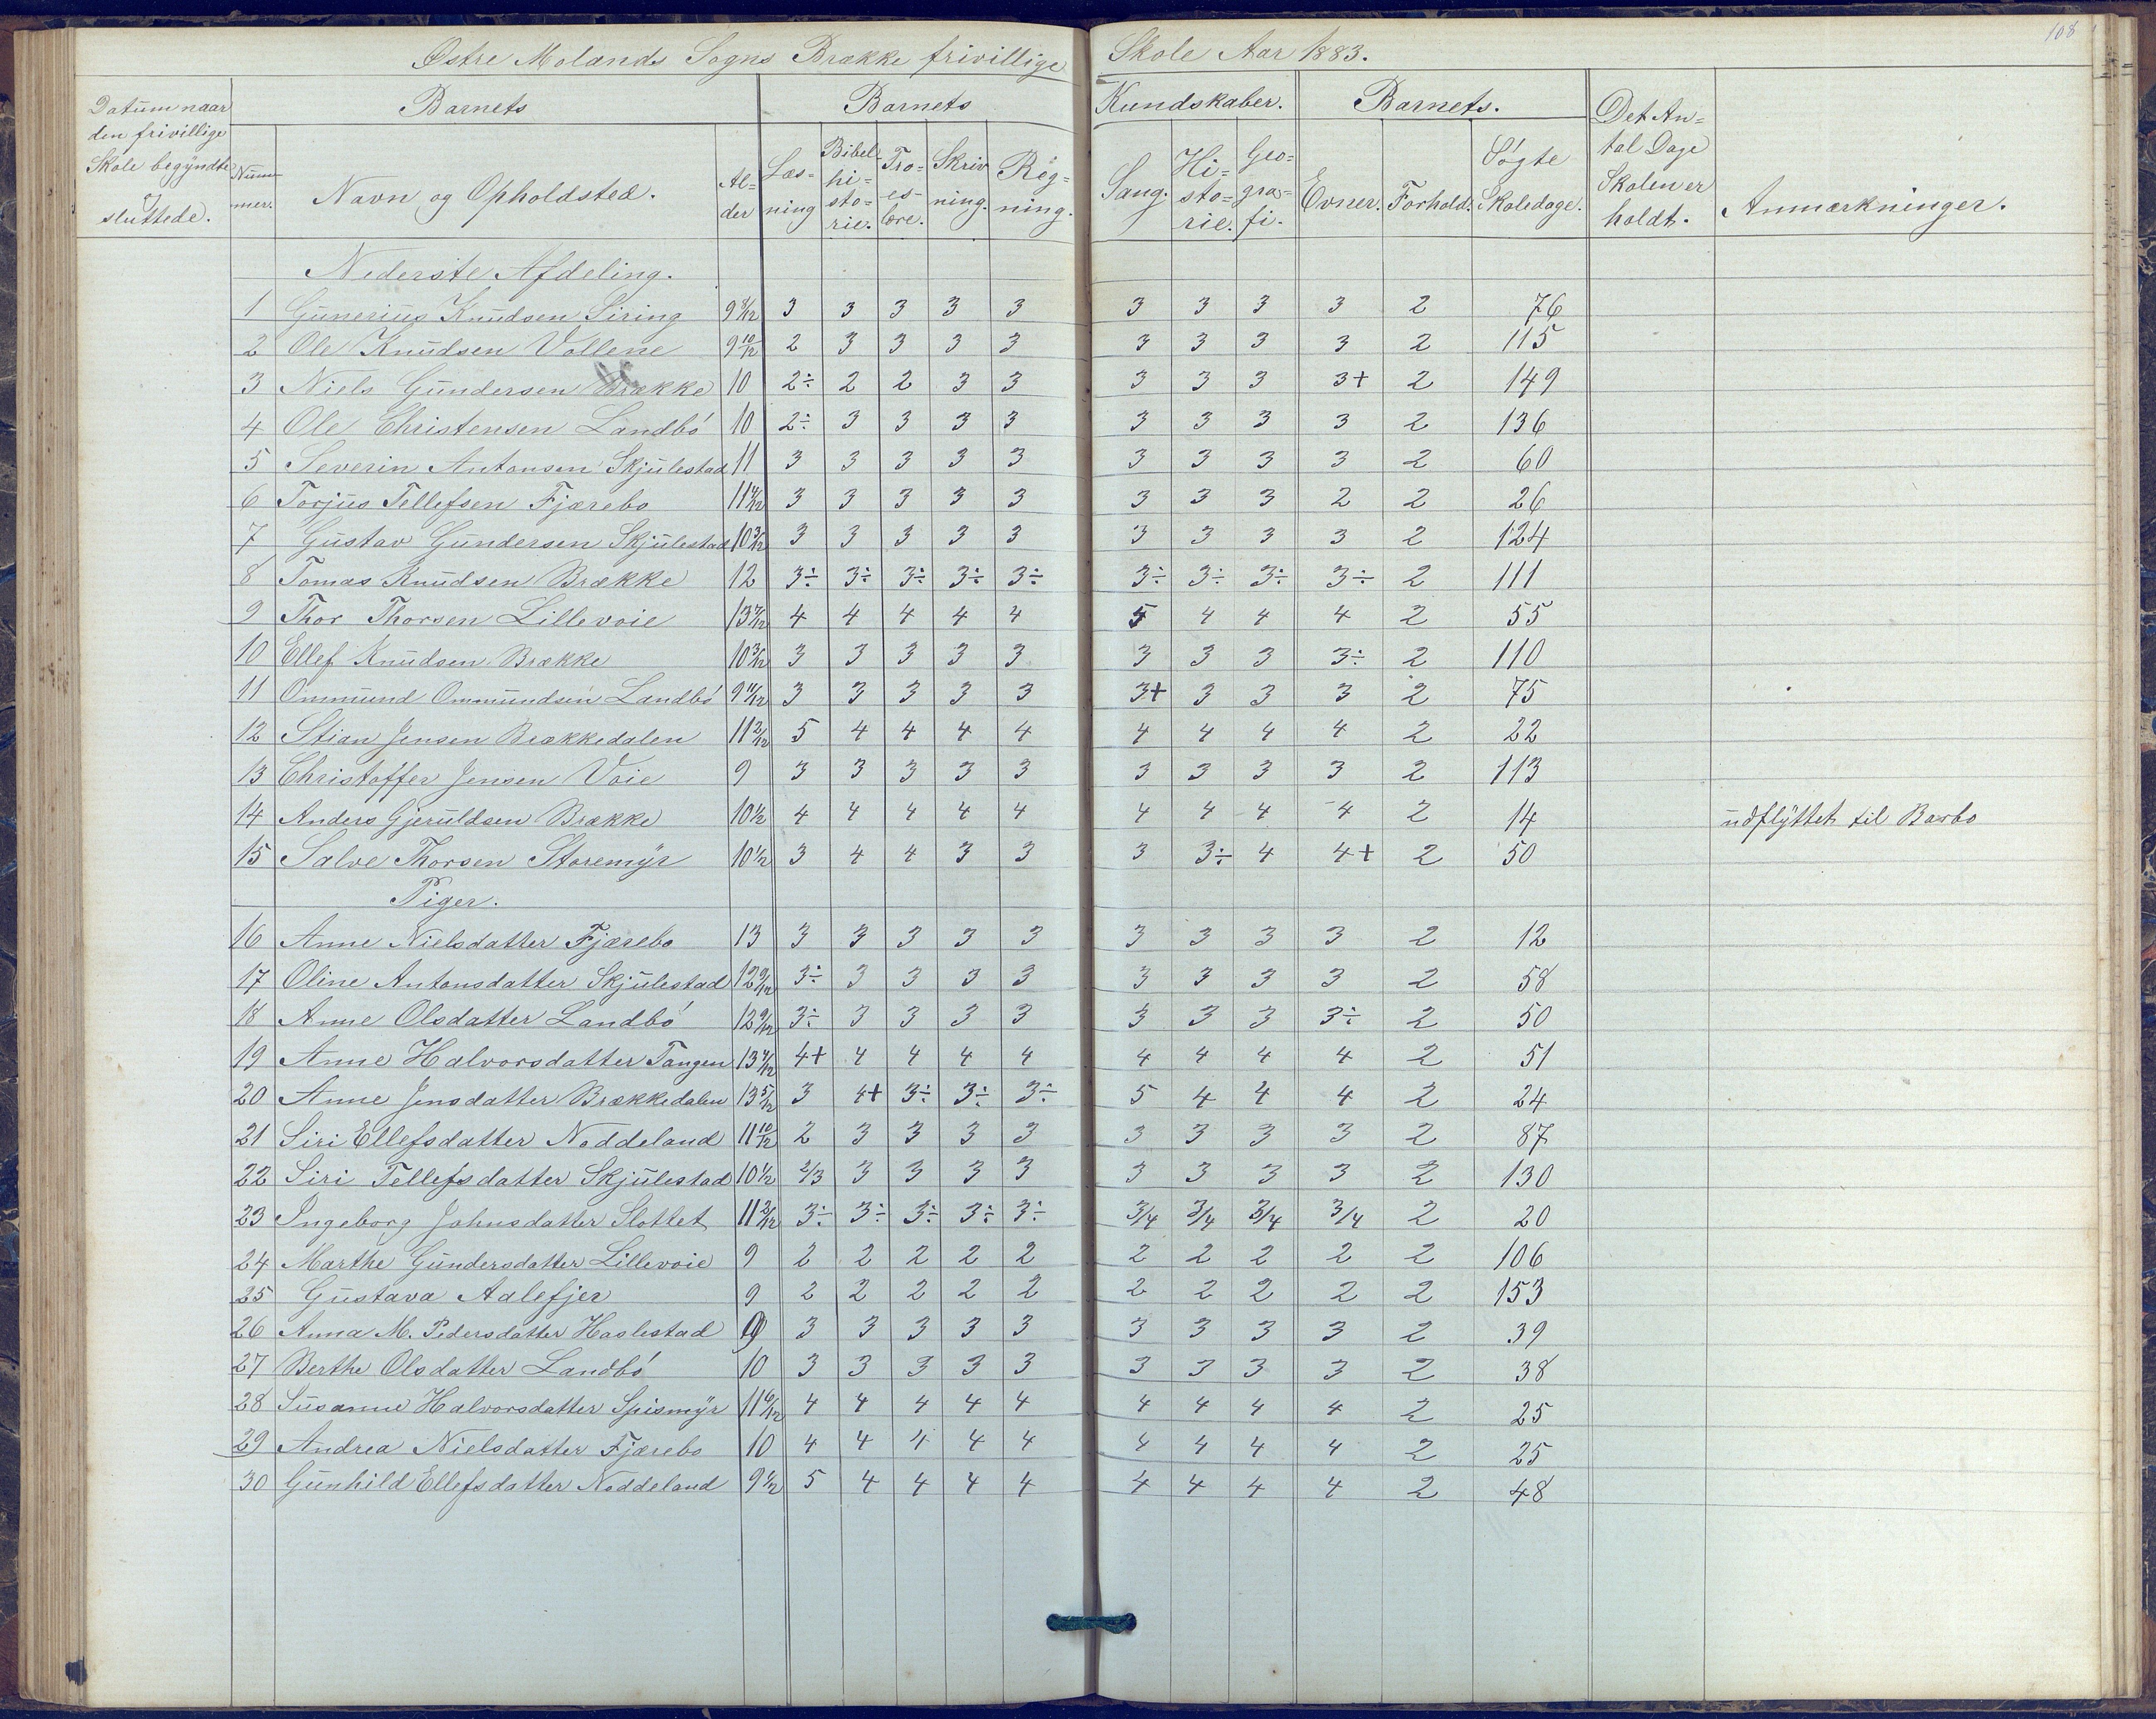 108
Østre Molands Sogns Brække frivillige Skole Aar 1883.
Datum naar den frivillige Skole begyndte og sluttede.
Barnets
Barnets Kundskaber.
Barnets.
Det An=tal Dage Skolen er holdt.
Anmærkninger.
Num=mer. Navn og Opholdsted. Al=der Læs=ning Bibel=hi=sto=rie. Tro=es=lære. Skriv ning. Reg=ning. Sang. Hi=sto=rie. Geo=gra=fi. Evner. Forhold. Søgte Skoledage.
Nederste Afdeling.
1 Gunerius Knudsen Siring 9 8/12 3 3 3 3 3 3 3 3 3 2 76
2 Ole Knudsen Vollene 9 10/12 2 3 3 3 3 3 3 3 3 2 115
3 Niels Gundersen Brække 10 2÷ 2 2 3 3 3 3 3 3+ 2 149
4 Ole Christensen Landbö 10 2÷ 3 3 3 3 3 3 3 3 2 136
5 Severin Antonsen Skjulestad 11 3 3 3 3 3 3 3 3 3 2 60
6 Torjus Tellefsen Fjærebo 11 4/12 3 3 3 3 3 3 3 3 2 2 26
7 Gustav Gundersen Skjulestad 10 3/12 3 3 3 3 3 3 3 3 3 2 124
8 Tomas Knudsen Brække 12 3÷ 3÷ 3÷ 3÷ 3÷ 3÷ 3÷ 3÷ 3÷ 2 111
9 Thor Thorsen Lillevoie 13 7/12 4 4 4 4 4 5 4 4 4 2 55
10 Ellef Knudsen Brække 10 3/12 3 3 3 3 3 3 3 3 3÷ 2 110
11 Ommund Ommundsen Landbö 9 11/12 3 3 3 3 3 3+ 3 3 3 2 75
12 Stian Jensen Brækkedalen 11 2/12 5 4 4 4 4 4 4 4 4 2 22
13 Christoffer Jensen Voie 9 3 3 3 3 3 3 3 3 3 2 113
14 Anders Gjeruldsen Brække 10 1/2 4 4 4 4 4 4 4 4 4 2 14 udflyttet til Barbo
15 Salve Thorsen Storemyr 10 1/2 3 4 4 3 3 3 3÷ 4 4+ 2 50
Piger.
16 Anne Nielsdatter Fjærebo 13 3 3 3 3 3 3 3 3 3 2 12
17 Oline Antonsdatter Skjulestad 12 9/12 3÷ 3 3 3 3 3 3 3 3 2 58
18 Anne Olsdatter Landbö 12 9/12 3÷ 3 3 3 3 3 3 3 3÷ 2 50
19 Anne Halvorsdatter Tangen 13 4/12 4+ 4 4 4 4 4 4 4 4 2 51
20 Anne Jensdatter Brækkedalen 13 5/12 3 4+ 3÷ 3÷ 3÷ 5 4 4 4 2 24
21 Siri Ellefsdatter Noddeland 11 10/12 2 3 3 3 3 3 3 3 3 2 87
22 Siri Tellefsdatter Skjulestad 10 1/2 2/3 3 3 3 3 3 3 3 3 2 130
23 Ingeborg Johnsdatter Slottet 11 2/12 3÷ 3÷ 3÷ 3÷ 3÷ 3/4 3/4 3/4 3/4 2 20
24 Marthe Gundersdatter Lillevoie 9 2 2 2 2 2 2 2 2 2 2 106
25 Gustava Aalefjer 9 2 2 2 2 2 2 2 2 2 2 153
26 Anna M. Pedersdatter Haslestad 9 3 3 3 3 3 3 3 3 3 2 39
27 Berthe Olsdatter Landbö 10 3 3 3 3 3 3 3 3 3 2 38
28 Susanne Halvorsdatter Spismyr 11 6/12 4 4 4 4 4 4 4 4 4 2 25
29 Andrea Nielsdatter Fjærebo 10 4 4 4 4 4 4 4 4 4 2 25
30 Gunhild Ellefsdatter Noddeland 9 1/2 5 4 4 4 4 4 4 4 4 2 48